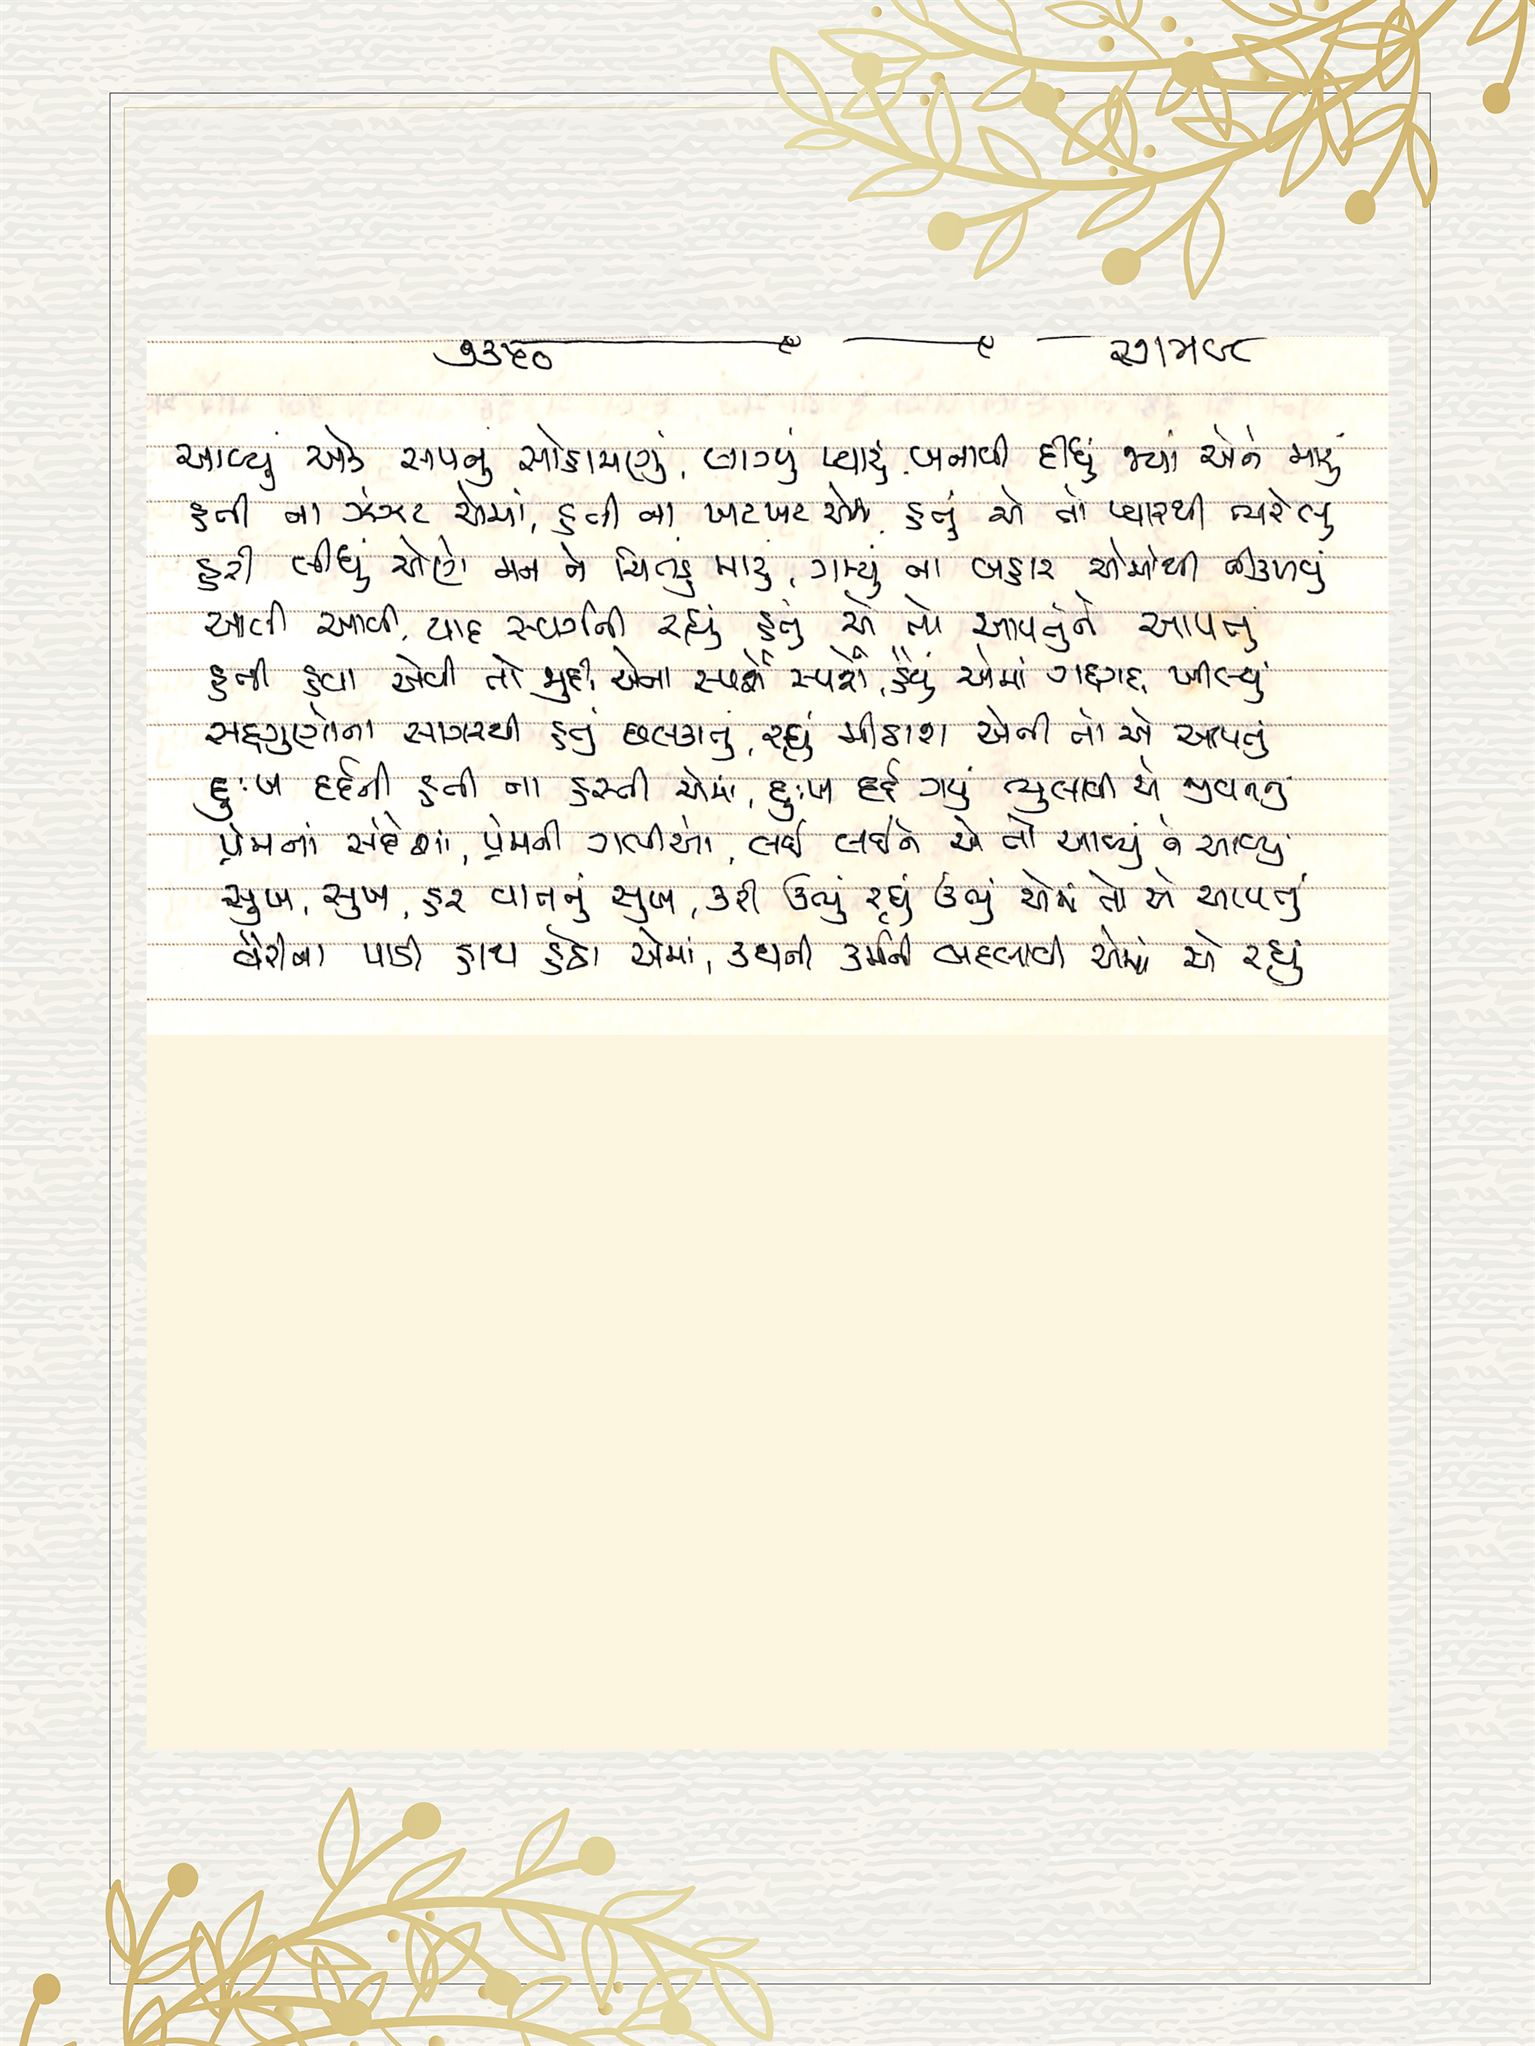 આવ્યું એક સપનું સોહામણું, લાગ્યું પ્યારું, બનાવી દીધું જ્યાં એને મારું
હતી ના ઝંઝટ એમાં, હતી ના ખટપટ એમાં, હતું એ તો પ્યારથી ભરેલું
હરી લીધું એણે મન ને ચિત્તડું મારું, ગમ્યું ના બહાર એમાંથી નીકળવું
આવી આવી, યાદ સ્વર્ગની રહ્યું હતું એ તો આપતુંને આપતું
હતી હવા એવી તો મૃદુ, એના સ્પર્શે સ્પર્શે, હૈયું એમાં ગદ્ગદ્ ખીલ્યું
સદ્ગુણોના સાગરથી હતું છલકાતું, રહ્યું મીઠાશ એની તો એ આપતું
દુઃખ દર્દની હતી ના હસ્તી એમાં, દુઃખ દર્દ ગયું ભુલાવી એ જીવનનું
પ્રેમનાં સંદેશા, પ્રેમની ગલીઓ, લઈ લઈને એ તો આવ્યું ને આવ્યું
સુખ, સુખ, હર વાતનું સુખ, કરી ઊભું રહ્યું ઊભું એમાં તો એ આપતું
વેરીના પાડી હાથ હેઠા એમાં, કથની કર્મની બદલાવી એમાં એ રહ્યું